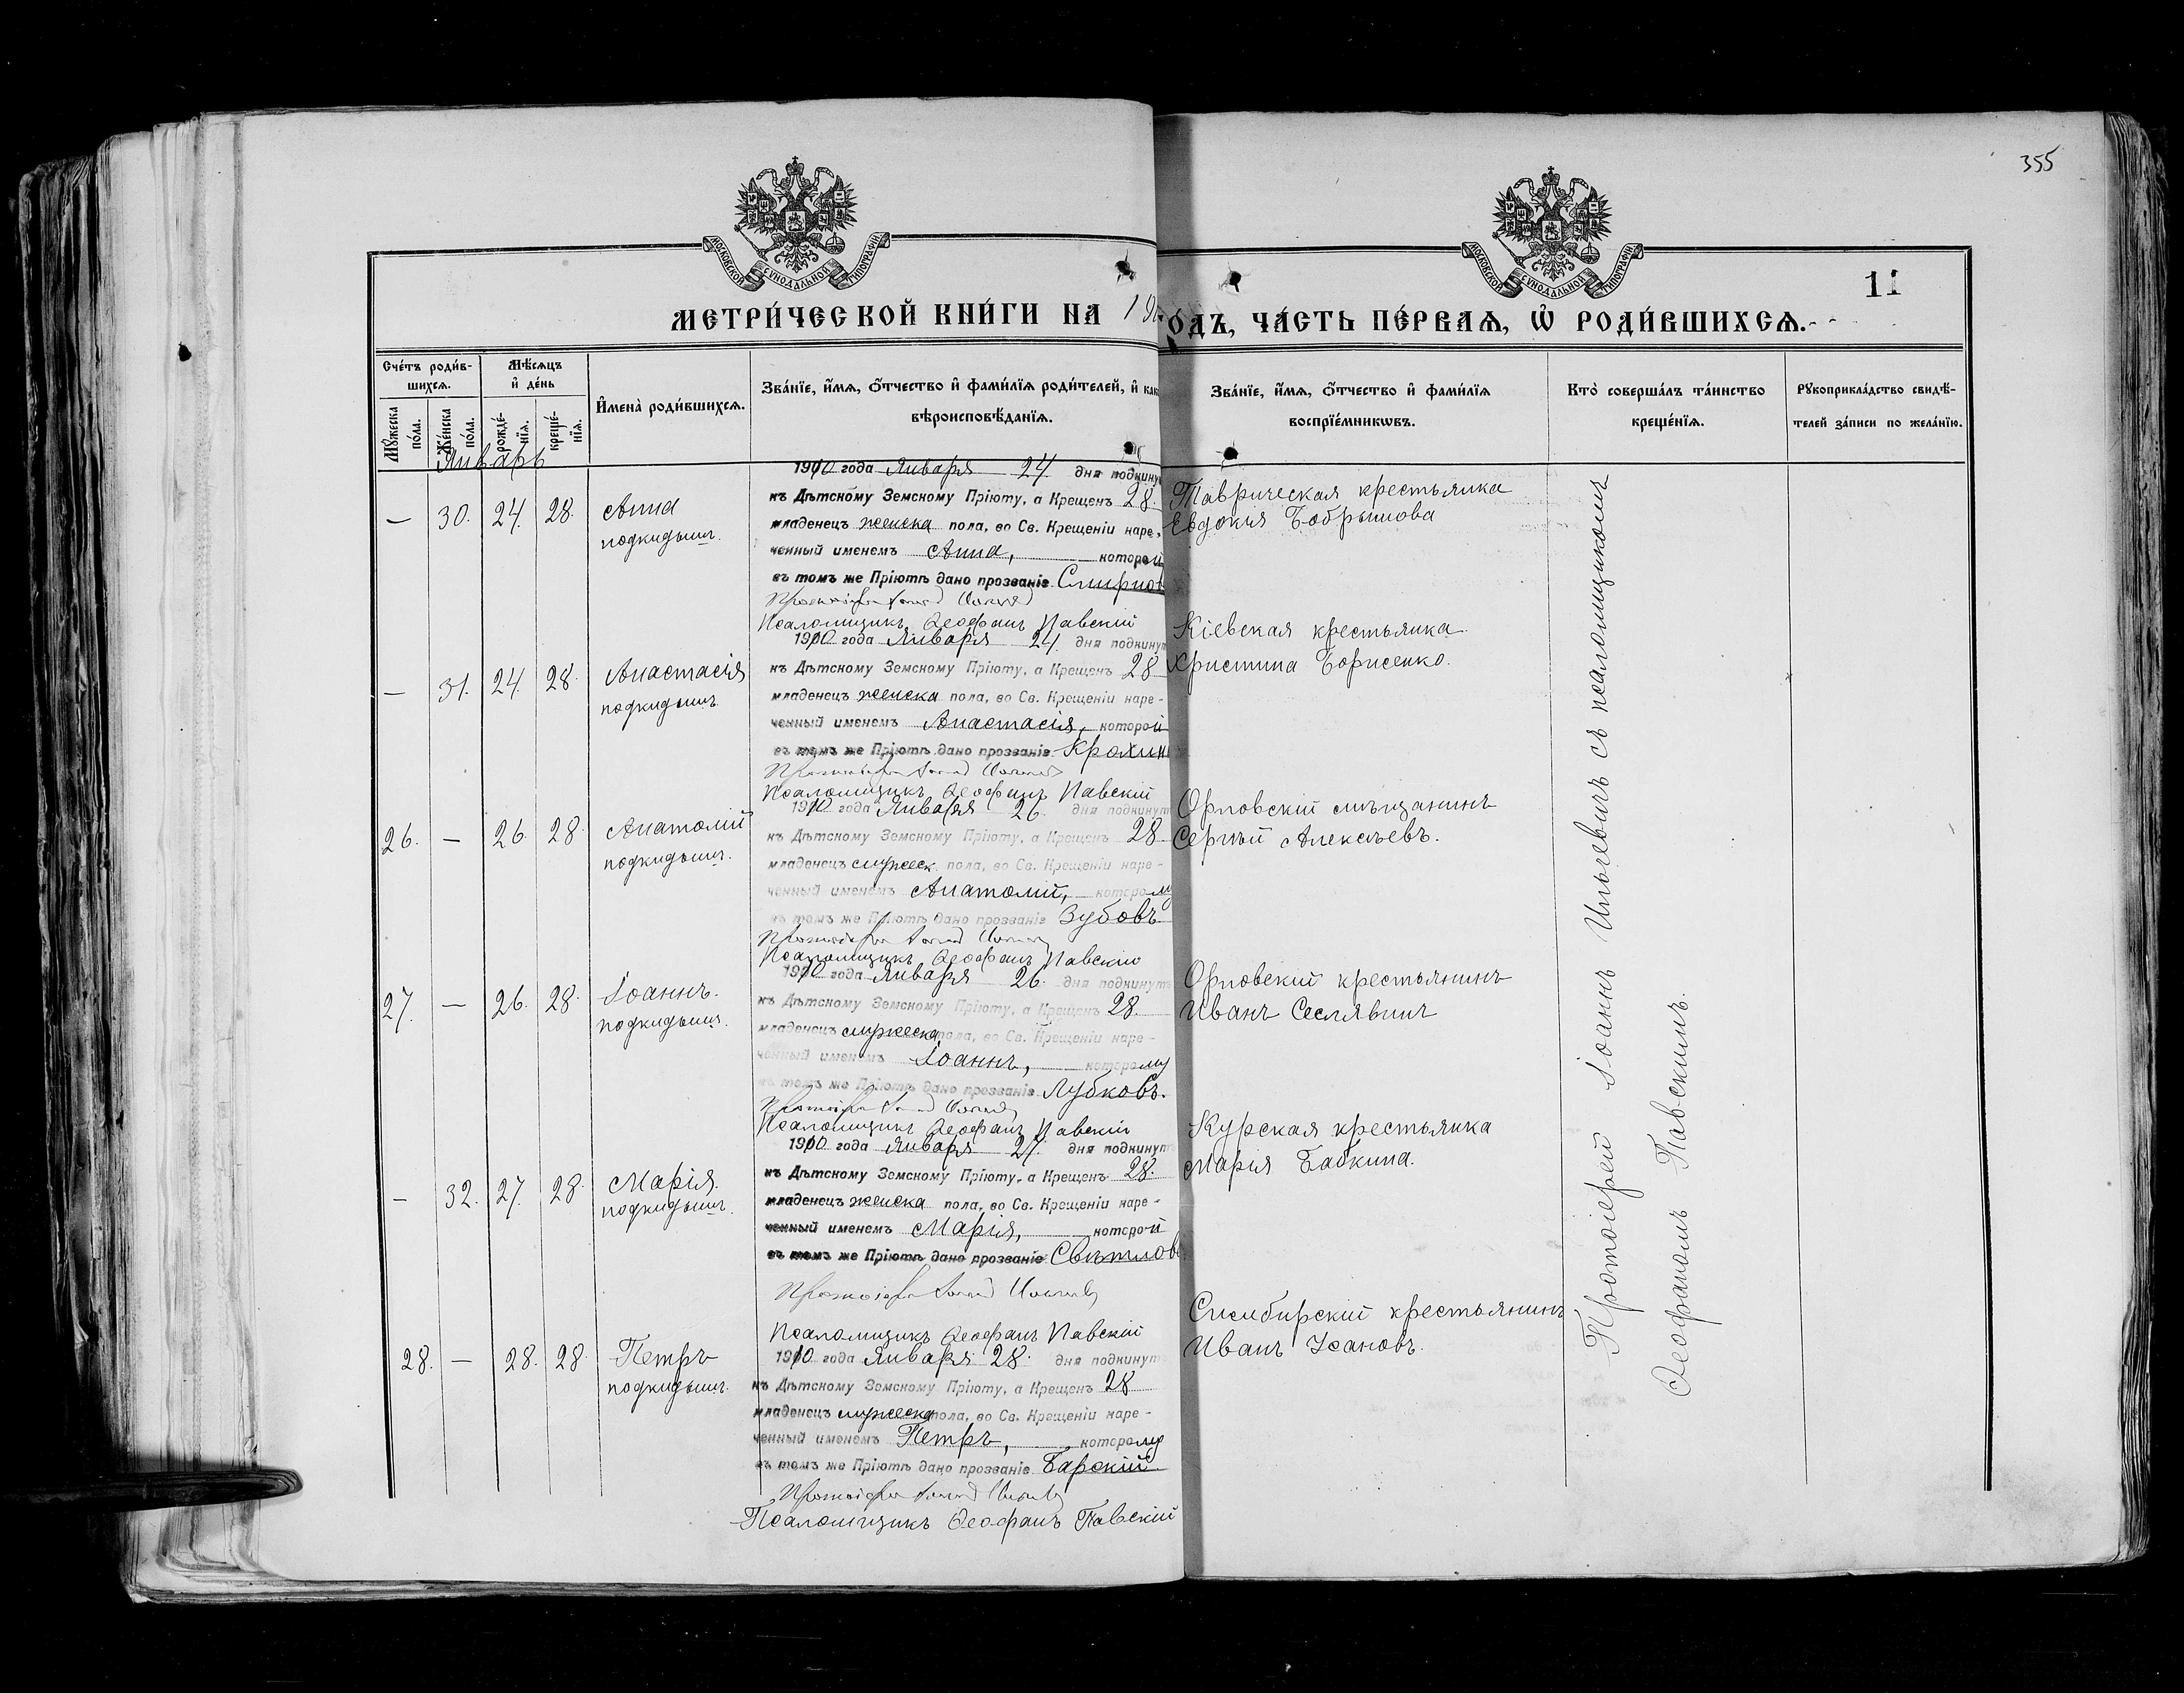 355
МОСКОВСКОЙ СѴНОДАЛЬНОЙ ТИПОГРАФІИ
МОСКОВСКОЙ СѴНОДАЛЬНОЙ ТИПОГРАФІИ
11
МЕТРИ́ЧЕСКОЙ КНИ́ГИ НА 19
ОДЪ, ЧА́СТЬ ПЕ́РВАѦ, Ѽ РОДИ́ВШИХСѦ.
Сче́тъ роди́в-
шихсѧ.
Мꙋ́жеска по́ла.
Же́нска по́ла.
Мѣ́сѧцъ и҆ де́нь
рожде́-нїѧ.
креще́-нїѧ.
И҆мена̀ роди́вшихсѧ.
Зва́нїе, и҆́мѧ, ѻ҆́тчество и҆ фами́лїѧ роди́телей, и҆ как
вѣроисповѣ́данїѧ.
Зва́нїе, и҆́мѧ, ѻ҆́тчество и҆ фами́лїѧ
воспрїе́мникѡвъ.
Кто̀ соверша́лъ та́инство
креще́нїѧ.
Рꙋкоприкла́дство свидѣ́-
телей за́писи по жела́нїю.
Январь
— 30. 24. 28. Анна
подкидышъ.
1910 года Января 24 дня подкинут
къ Дѣтскому Земскому Пріюту, а Крещенъ 28.
младенецъ женска пола, во Св. Крещеніи наре-
ченный именемъ Анна, которой
въ томъ же Пріютѣ дано прозваніе Смирнов
Псаломщикъ Ѳеофанъ Павскій
Таврическая крестьянка
Евдокія Бобрышова
— 31. 24. 28. Анастасія
подкидышъ.
1910 года Января 24. дня подкинут
къ Дѣтскому Земскому Пріюту, а Крещенъ 28
младенецъ женска пола, во Св. Крещеніи наре-
ченный именемъ Анастасія, которой
въ томъ же Пріютѣ дано прозваніе Крохин
Псаломщикъ Ѳеофанъ Павскій
Кіевская крестьянка
Христина Борисенко.
26. — 26. 28. Анатолій
подкидышъ.
1910 года Января 26. дня подкинут
къ Дѣтскому Земскому Пріюту, а Крещенъ 28.
младенецъ мужеск пола, во Св. Крещеніи наре-
ченный именемъ Анатолій, которому
въ томъ же Пріютѣ дано прозваніе Зубовъ
Псаломщикъ Ѳеофанъ Павскій
Орловскій мѣщанинъ
Сергѣй Алексѣевъ.
27. — 26. 28. Іоаннъ.
подкидышъ.
1910 года Января 26. дня подкинутъ
къ Дѣтскому Земскому Пріюту, а Крещенъ 28.
младенецъ мужеска пола, во Св. Крещеніи наре-
ченный именемъ Іоаннъ, которому
въ томъ же Пріютѣ дано прозваніе Лубковъ.
Псаломщикъ Ѳеофанъ Павскій
Орловскій крестьянинъ
Иванъ Сеславинъ
— 32. 27. 28. Марія.
подкидышъ.
1910 года Января 27. дня подкинут
къ Дѣтскому Земскому Пріюту, а Крещенъ 28.
младенецъ женска пола, во Св. Крещеніи наре-
ченный именемъ Марія, которой
въ томъ же Пріютѣ дано прозваніе Свѣтлов
Псаломщикъ Ѳеофанъ Павскій
Курская крестьянка
Марія Бабкина.
28. — 28. 28. Петръ
подкидышъ.
1910 года Января 28. дня подкинутъ
къ Дѣтскому Земскому Пріюту, а Крещенъ 28
младенецъ мужеска пола, во Св. Крещеніи наре-
ченный именемъ Петръ, которому
въ томъ же Пріютѣ дано прозваніе Барскій
Псаломщикъ Ѳеофанъ Павскій
Симбирскій крестьянинъ
Иванъ Усановъ.
Протоіерей Іоаннъ Ильчевичъ съ псаломщикомъ
Ѳеофаномъ Павскимъ.